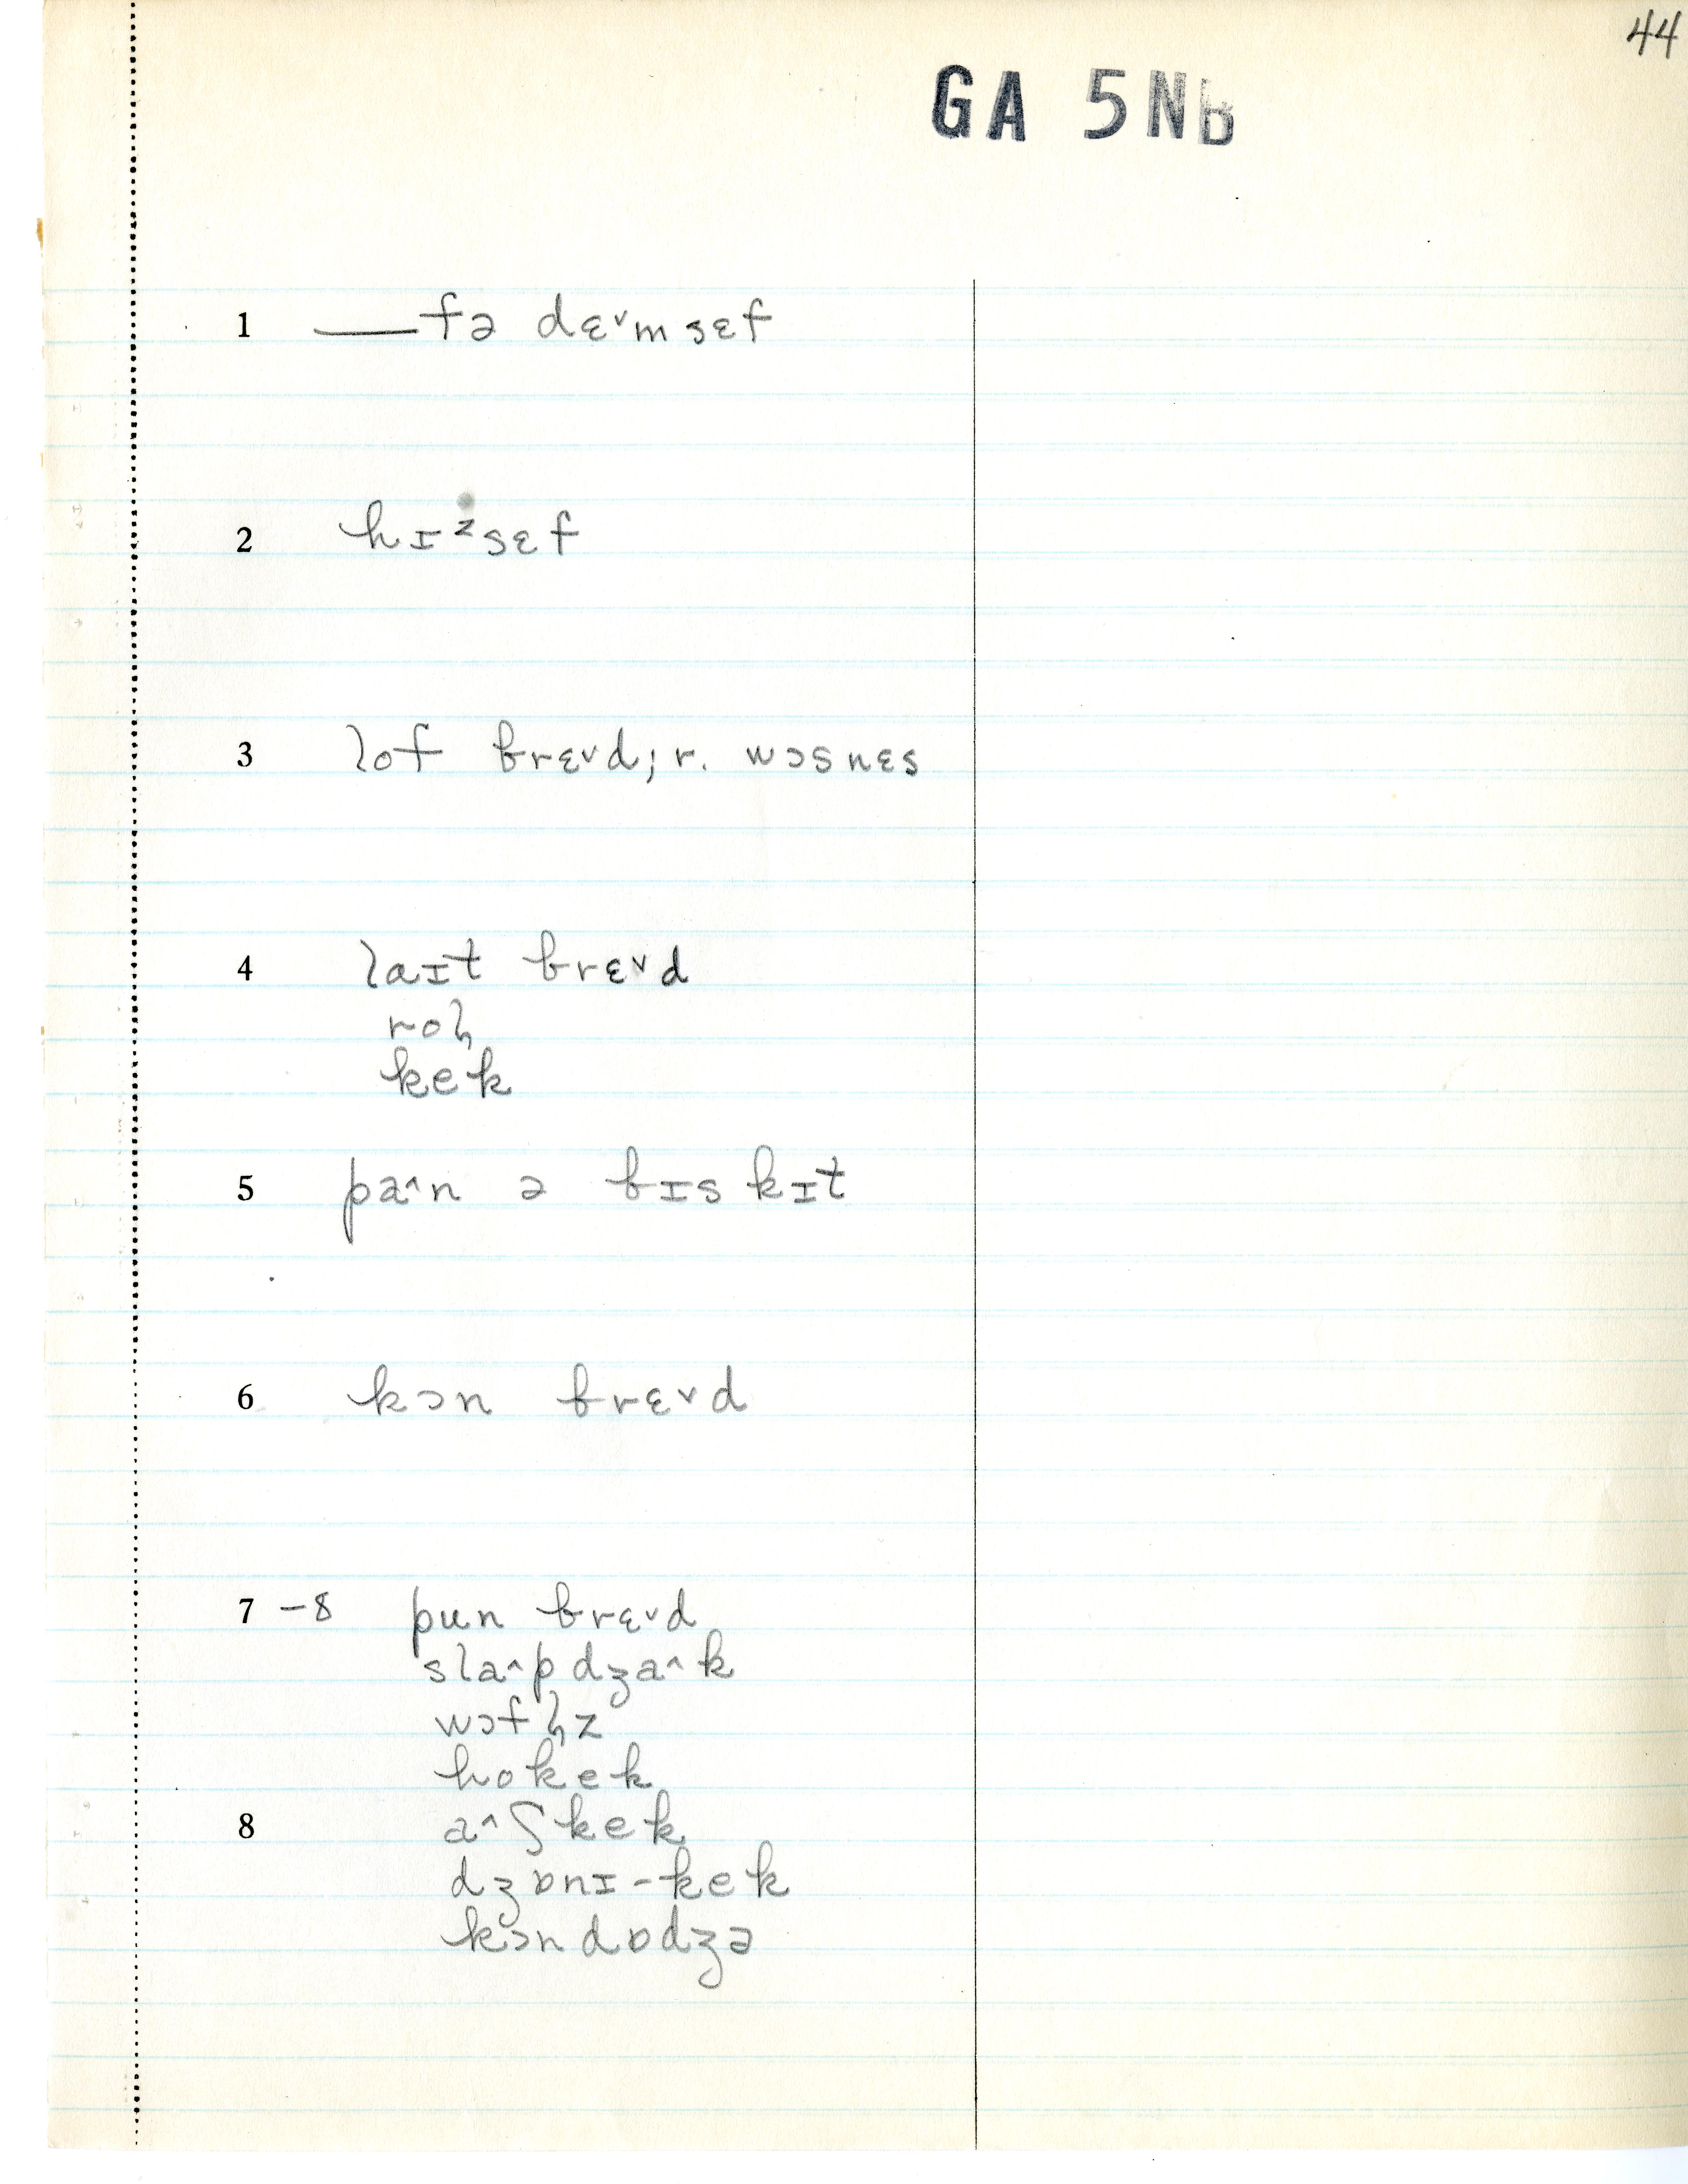 44
GA 5NB
1 ___fə dɛ˅m sɛf
2 hɪᶻsɛf
3 lof brɛ˅d; r. wɔsnɛs
4 laɪt brɛ˅d
rol̩
kek
5 pa˄n ə bɪskɪt
6 kɔn brɛ˅d
7 –8 pun brɛ˅d
sla˄p dʒa˄k
wɔfl̩z
hokek
8 a˄ʃkek
dʒɒnɪ-kek
kɔndɒdʒə